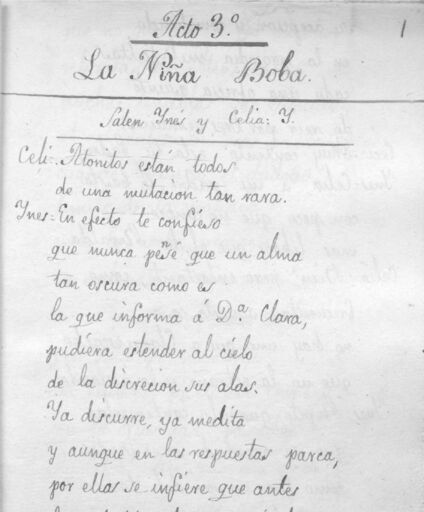 Acto 3.º
1
La Niña Boba.
Salen Ynés y Celia: Y.
Celi: Atonitos están todos
de una mutacion tan rara.
Ynes: En efecto te confieso
que nunca pensé que un alma
tan oscura como es
la que informa á D.ª Clara,
pudiera estender al cielo
de la discrecion sus alas.
Ya discurre, ya medita
y aunque en las respuestas parca,
por ellas se infiere que antes